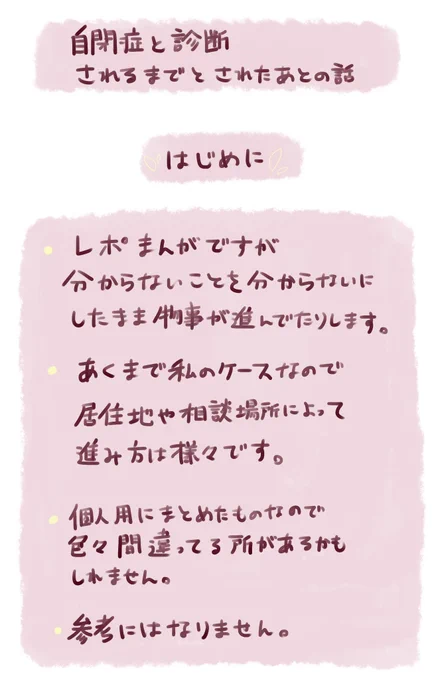 自閉症と診断
されるまでとされたあとの話
はじめに
レポまんがですが
分からないことを分からないに
したまま物事が進んでたりします。
あくまで私のケースなので
居住地や相談場所によって
進み方は様々です。
個人用にまとめたものなので
色々間違ってる所があるかも
しれません。
参考にはなりません。